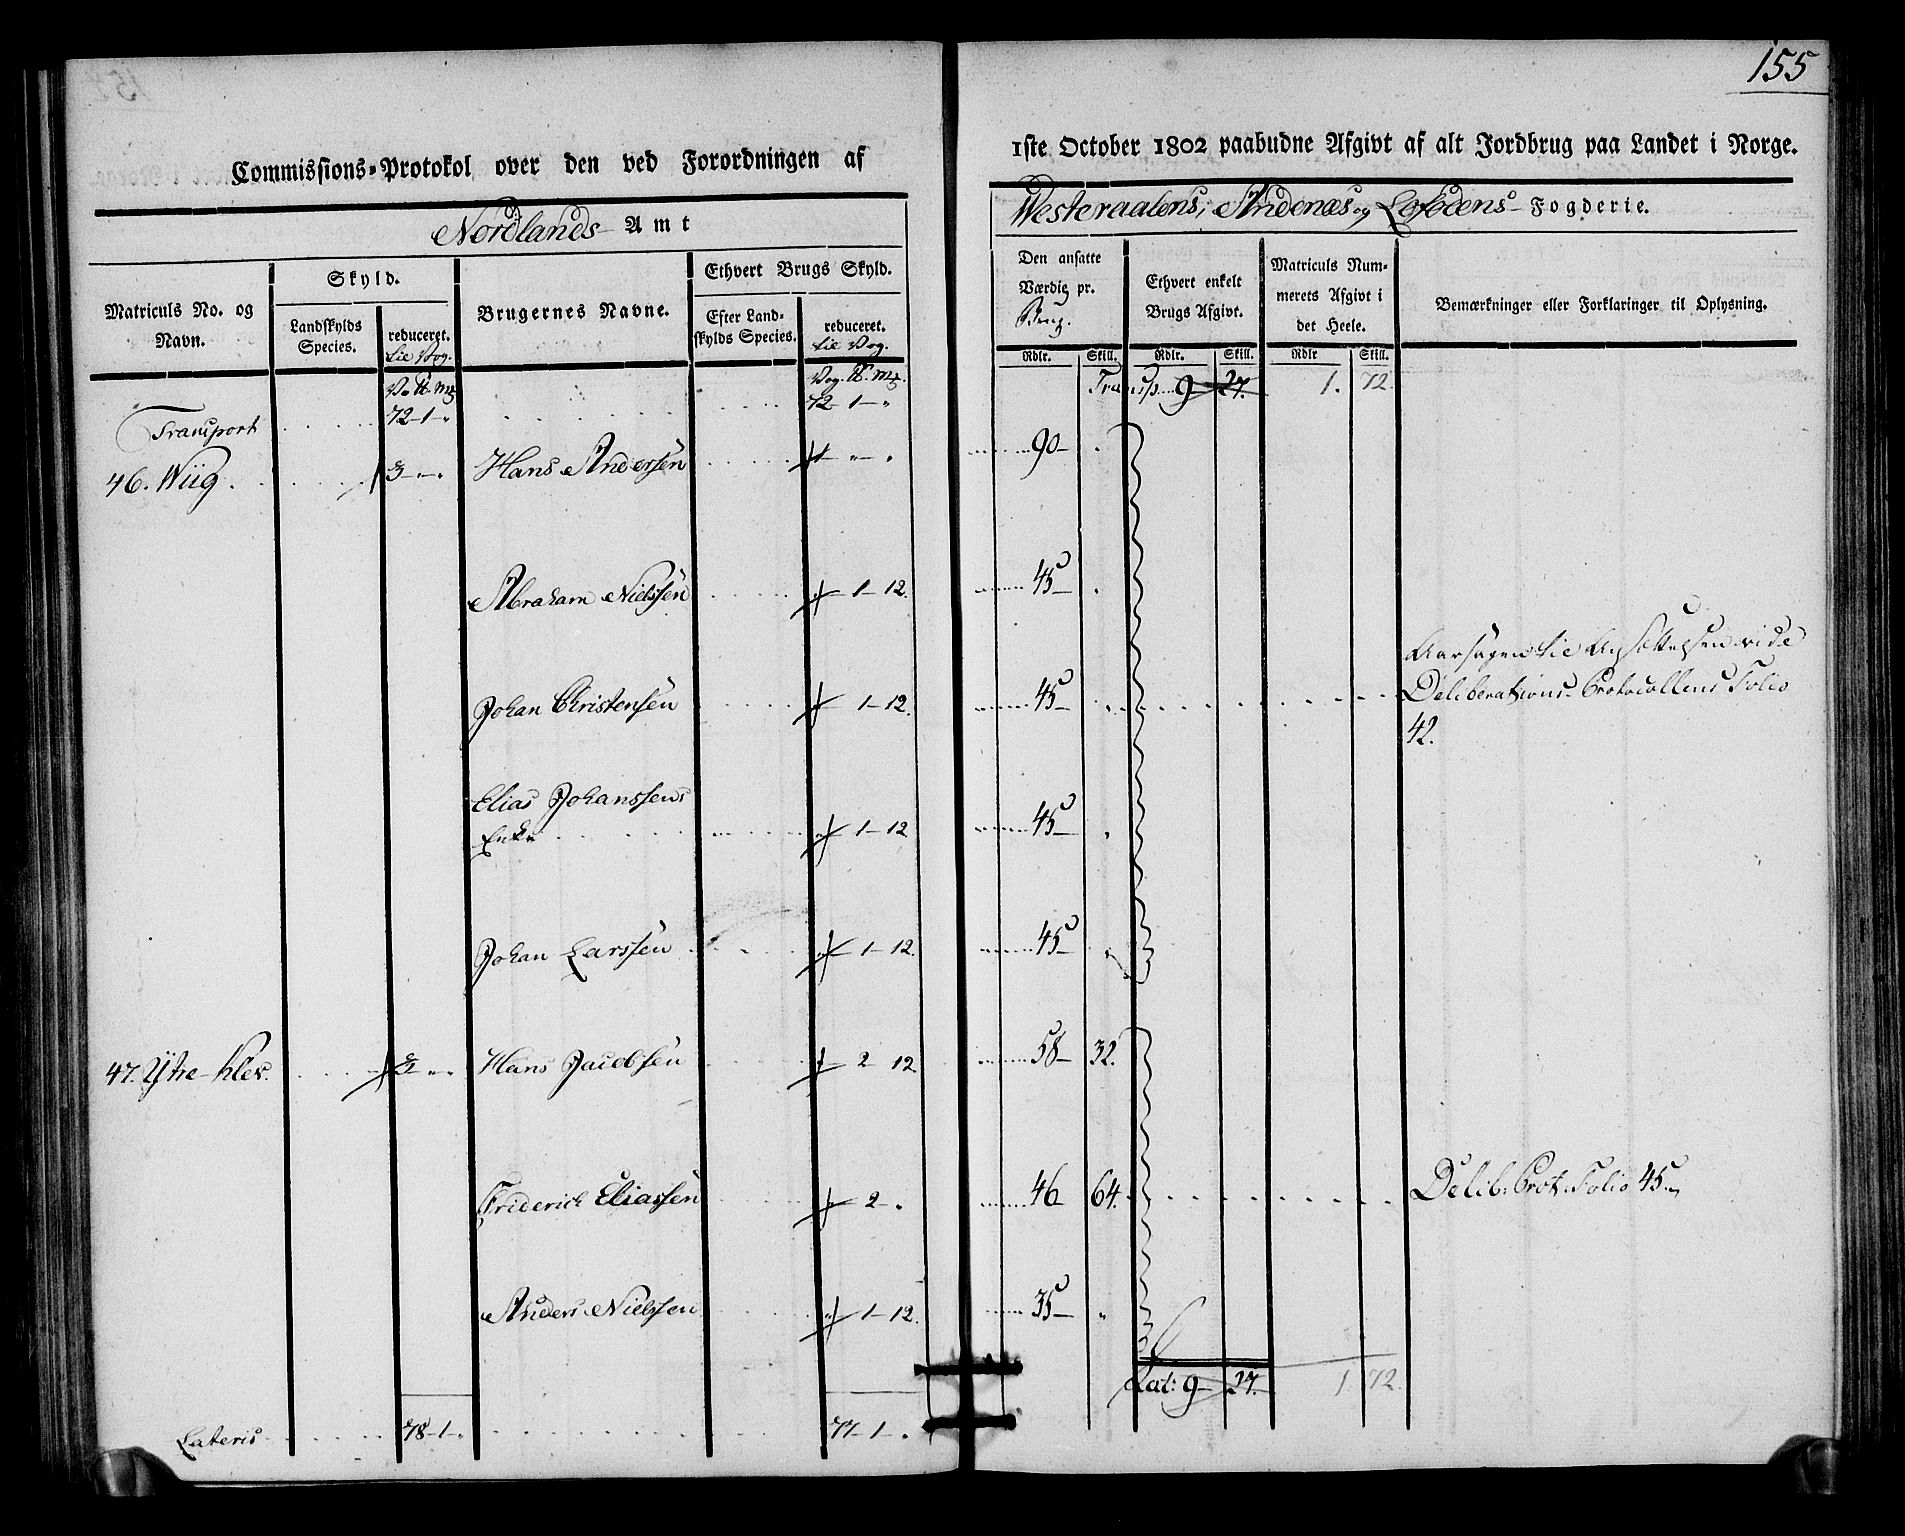 155
Commissions-Protokol over den ved Forordningen af
1ste October 1802 paabudne Afgivt af alt Jordbrug paa Landet i Norge.
Nordlands Amt
Westeraalens, Andenæs og Lofodens Fogderie.
Matriculs No. og Navn.
Skyld.
Landskylds Species.
reduceret. til Vog.
Brugernes Navne.
Ethvert Brugs Skyld.
Efter Landskylds Species.
reduceret. til Vog.
Den ansatte Værdie pr. Brug.
Ethvert enkelt Brugs Afgivt.
Matriculs Nummerets Afgivt i det Heele.
Bemærkninger eller Forklaringer til Oplysning.
Rdlr. Skill. Rdlr. Skill. Rdlr Skill.
Transport 72-1-" 72-1-" Transp. 9 27. 1. 72.
46. Wiig. 3-"-" Hans Andersen 90-
Abraham Nielsen 1-12. 45-
Johan Christensen 1-12. 45-
Aarsagen til Ansættelsen vide
Deliberations-Protocollens Folio
42.
Elias Johanssens
Enke 1-12 45-
Johan Larssen 1-12. 45-
47. Ytre-Klev. Hans Jacobsen 2 12. 58- 32.
Friderich Eliassen 2-. 46 64. Delib: Prot. Folio 45.
Anders Nielssen 1-12. 35- "
Lat: 9- 27. 1. 72.
Lateris 78-1-. 77-1-.